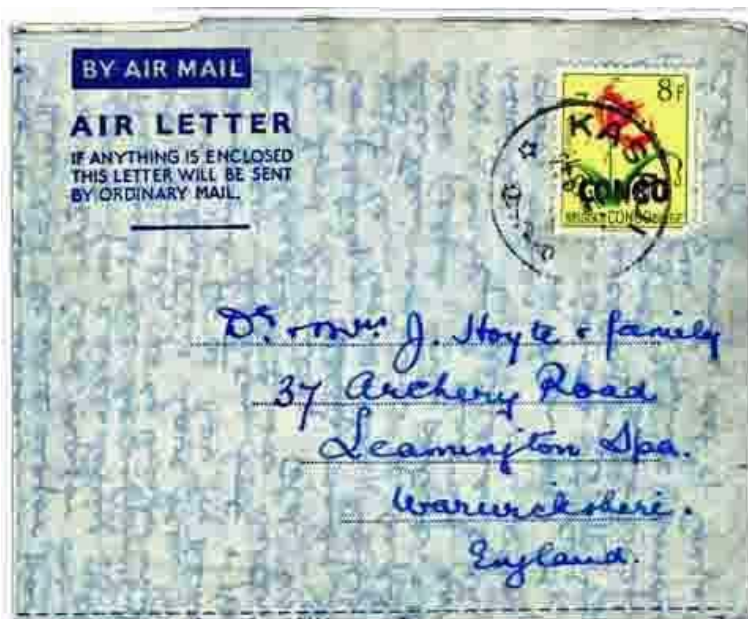 BY AIR MAIL
AIR LETTER
IF ANYTHING IS ENCLOSED
THIS LETTER WILL BE SENT
BY ORDINARY MAIL.
8F
CONGO
Dr. & Mrs J. Hoyte & family
37 Archery Road
Leamington Spa.
Warwickshire.
England.